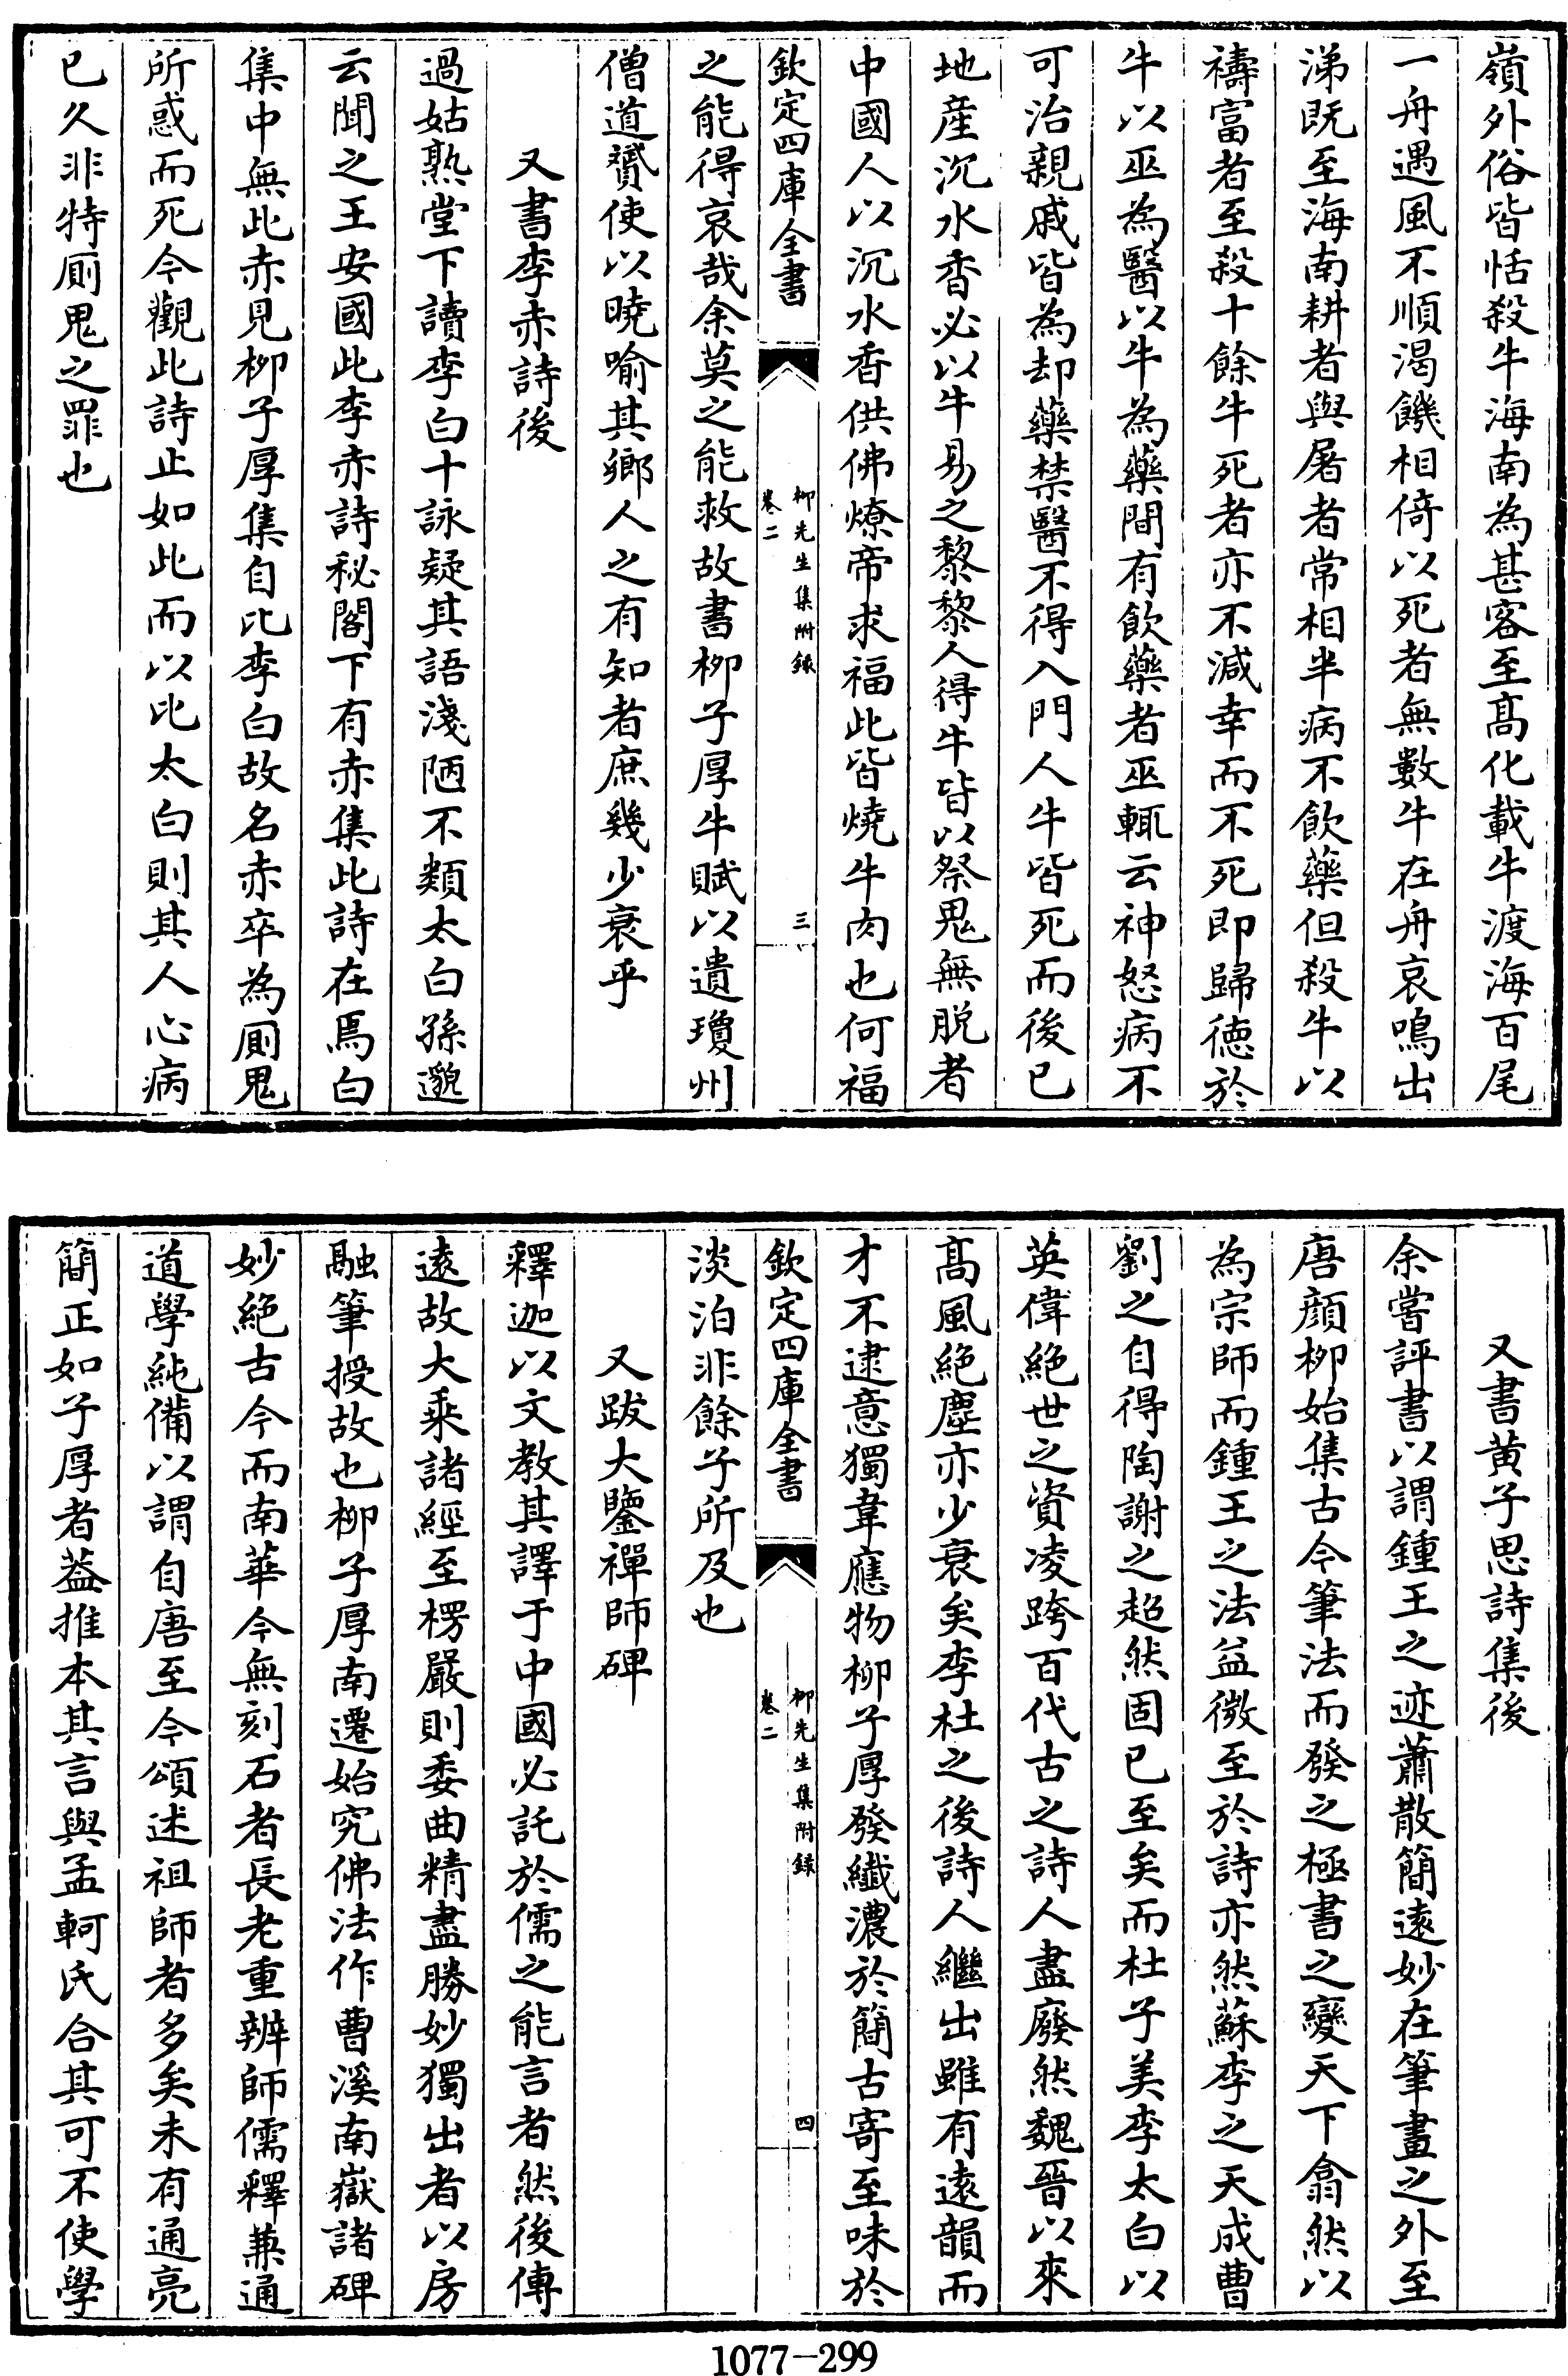 嶺外俗皆恬殺牛海南為甚客至髙化載牛渡海百尾
一舟遇風不順渇饑相倚以死者無數牛在舟哀鳴出
涕既至海南耕者與屠者常相半病不飲藥但殺牛以
禱富者至殺十餘牛死者亦不減幸而不死即歸徳於
牛以巫為醫以牛為藥間有飲藥者巫輒云神怒病不
可治親戚皆為却藥禁醫不得入門人牛皆死而後已
地産沉水香必以牛易之黎黎人得牛皆以祭鬼無脱者
中國人以沉水香供佛燎帝求福此皆燒牛肉也何福
欽定四庫全書
柳先生集附錄
卷二
三
之能得哀哉余莫之能救故書柳子厚牛賦以遺瓊州
僧道贇使以曉喻其鄉人之有知者庶幾少衰乎
又書李赤詩後
過姑熟堂下讀李白十詠疑其語淺陋不類太白孫邈
云聞之王安國此李赤詩秘閣下有赤集此詩在焉白
集中無此赤見柳子厚集自比李白故名赤卒為厠鬼
所惑而死今觀此詩止如此而以比太白則其人心病
已久非特厠鬼之罪也
又書黄子思詩集後
余嘗評書以謂鍾王之迹蕭散簡遠妙在筆畫之外至
唐顔柳始集古今筆法而發之極書之變天下翕然以
為宗師而鍾王之法益微至於詩亦然蘇李之天成曹
劉之自得陶謝之超然固已至矣而杜子美李太白以
英偉絶世之資凌跨百代古之詩人盡廢然魏晉以來
髙風絶塵亦少衰矣李杜之後詩人繼出雖有遠韻而
才不逮意獨韋應物柳子厚發纖濃於簡古寄至味於
欽定四庫全書
柳先生集附錄
卷二
四
淡泊非餘子所及也
又跋大鑒禪師碑
釋迦以文教其譯于中國必託於儒之能言者然後傳
遠故大乘諸經至楞嚴則委曲精盡勝妙獨出者以房
融筆授故也柳子厚南遷始究佛法作曹溪南嶽諸碑
妙絶古今而南華今無刻石者長老重辨師儒釋兼通
道學純備以謂自唐至今頌述祖師者多矣未有通亮
簡正如子厚者葢推本其言與孟軻氏合其可不使學
1077-299